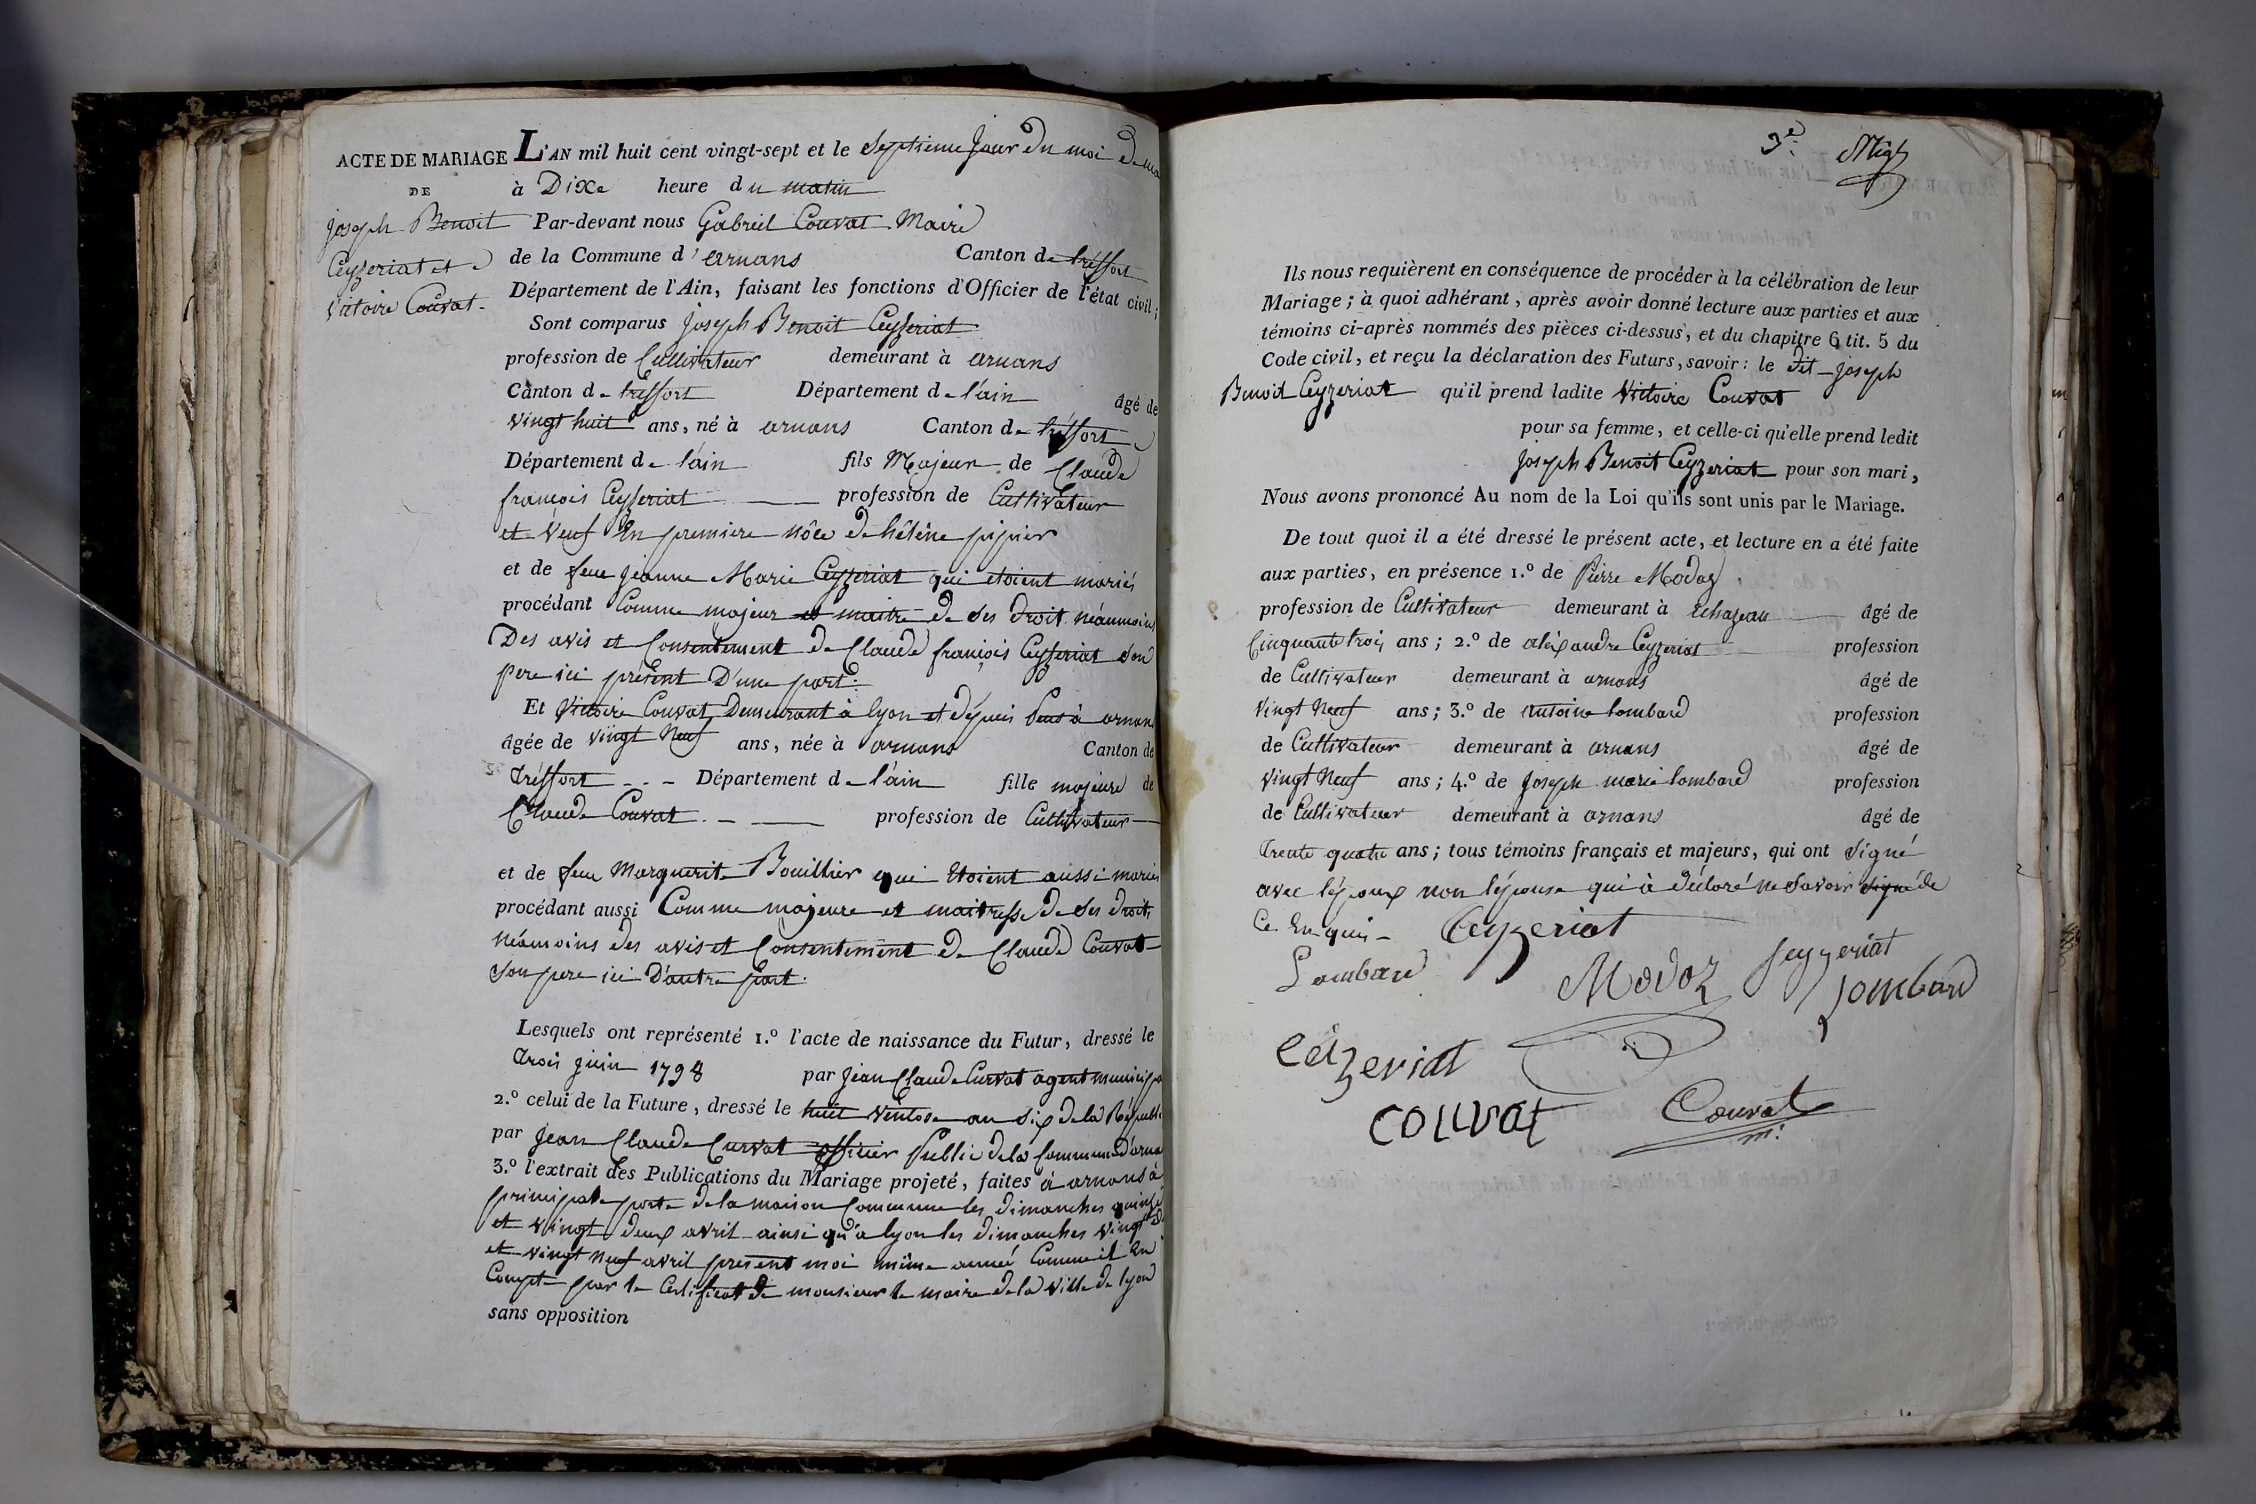 ACTE DE MARIAGE
DE
joseph Benoit
Ceyzeriat et
Victoire Couvat.
L'AN mil huit cent vingt-sept et le Septieme jour du moi de mai
à Dixe heure du matin
Par-devant nous Gabriel Couvat Maire
de la Commune d'arnans Canton de tréffort
Département de l'Ain, faisant les fonctions d'Officier de l'état civil;
Sont comparus joseph Benoit Ceyzeriat
profession de Cultivateur demeurant à arnans
Canton de treffort Département de l'ain âgé de
vingt huit ans, né à arnans Canton de tréffort
Département de l'ain fils Majeur de Claude
françois Ceyzeriat profession de Cultivateur
et Veuf En premiere nôce de hélène pipier
et de feue jeanne Marie Ceyzeriat qui etoient mariés
procédant Comme majeur et maitre de ses droit néanmoins
Des avis et Consentement de Claude françois Ceyzeriat son
pere ici présent D'une part.
Et Victoire Couvat Demeurant à lyon et depuis peus à arnans
âgée de vingt Neuf ans, née à arnans Canton de
Tréffort Département de l'ain fille majeure de
Claude Couvat profession de Cultivateur
et de feue Marguerite Bouillier qui Etoient aussi mariés
procédant aussi Comme majeure et maitresse de ses droits
Néamoins des avis et Consentement de Claude Couvat
son pere ici D'autre part.
Lesquels ont représenté 1.º l'acte de naissance du Futur, dressé le
Trois juin 1798 par jean Claude Curvat agent municipa
2.º celui de la Future, dressé le huit ventose an six de la Républi
par jean Claude Curvat officier Public de la Commune d'arna
3.º l'extrait des Publications du Mariage projeté, faites à arnans à
principale porte de la maison Commune les dimanches quinze
et vingt deux avril ainsi qu'à lyon les dimanches vingt
et vingt Neuf avril present moi même année Comme il En
Compte par le Certificat de monsieur le maire de la ville de lyon
sans opposition
3e
Ils nous requièrent en conséquence de procéder à la célébration de leur
Mariage; à quoi adhérant, après avoir donné lecture aux parties et aux
témoins ci-après nommés des pièces ci-dessus, et du chapitre 6 tit. 5 du
Code civil, et reçu la déclaration des Futurs, savoir: le dit joseph
Benoit Ceyzeriat qu'il prend ladite Victoire Couvat
pour sa femme, et celle-ci qu'elle prend ledit
joseph Benoit Ceyzeriat pour son mari,
Nous avons prononcé Au nom de la Loi qu'ils sont unis par le Mariage.
De tout quoi il a été dressé le présent acte, et lecture en a été faite
aux parties, en présence 1.º de Pierre Modoz
profession de Cultivateur demeurant à Echazeau âgé de
Cinquante trois ans; 2.º de aléxandre Ceyzeriat profession
de Cultivateur demeurant à arnans âgé de
Vingt Neuf ans; 3.º de Antoine lombard profession
de Cultivateur demeurant à arnans âgé de
Vingt Neuf ans; 4.º de joseph marie lombard profession
de Cultivateur demeurant à arnans âgé de
Trente quatre ans; tous témoins français et majeurs, qui ont signé
avec l'époux non l'épouse qui à déclaré ne savoir signé de
Ce Enquis Ceyzeriat
Lombard Modoz seyzeriat lombard
Céizeriat
couvat Couvat
m: